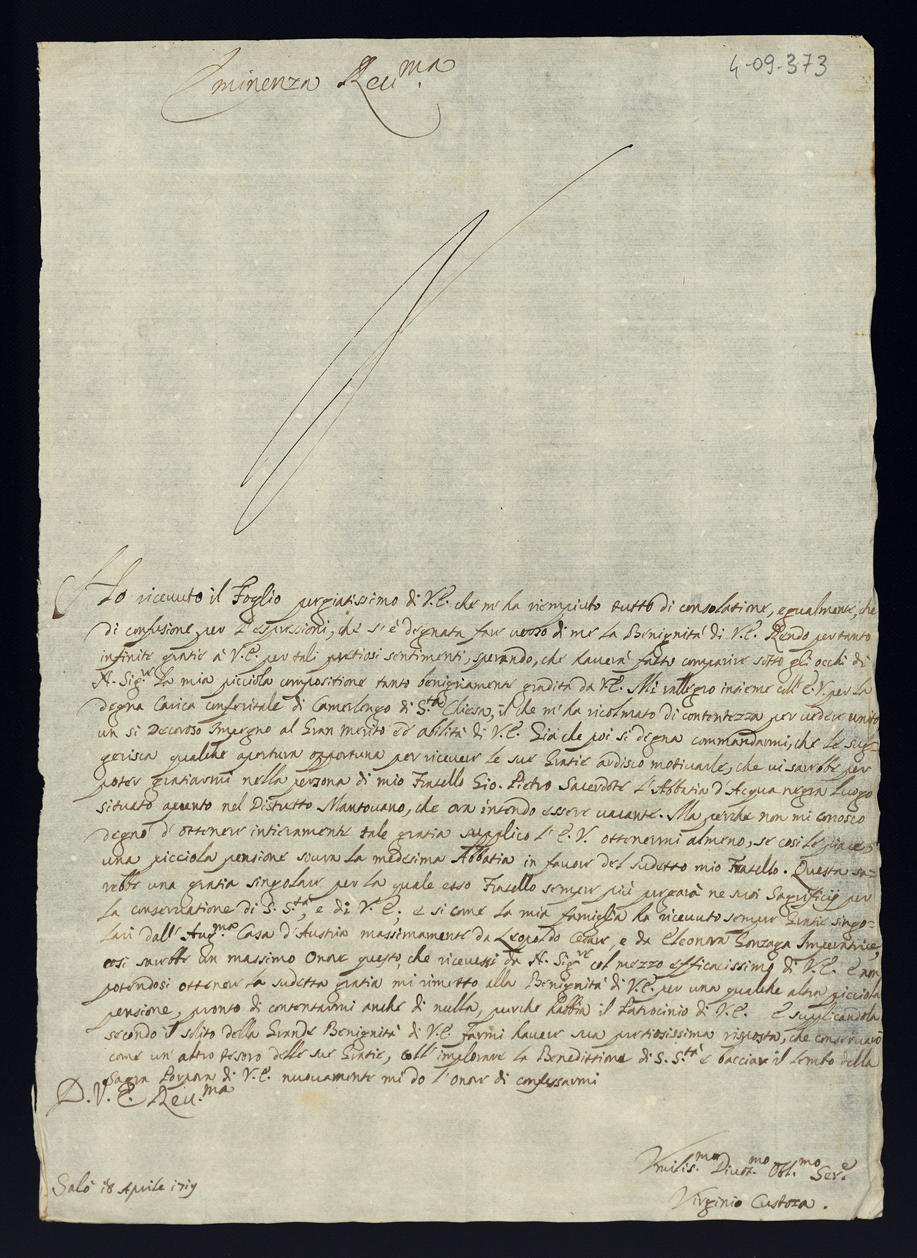 4-09-373
Eminenza Reu.ma
Ho riceuuto il Foglio pregiatissimo di V.E. che m'ha riempiuto tutto di consolatione, egualmente, che
di confusione per l'espressioni, che s'è degnata fare uerso di me la Benignità di V.E. Rendo per tanto
infinite gratie à V.E. per tali pretiosi sentimenti, sperando, che hauerà fatto comparire sotto gli occhi di
N. Sig.re la mia picciola compositione tanto benignamente gradita da V.E. Mi rallegro insieme coll'E.V. per la
degna Carica conferitale di Camerlengo di S.ta Chiesa, il che m'ha ricolmato di contentezza per uedere unito
un si Decoroso Impegno al Gran merito ed abilità di V.E. Già che poi si degna commandarmi, che le sug-
gerisca qualche apertura opportuna per riceuere le sue Gratie ardisco motiuarle, che ui sarebbe per
poter gratiarmi nella persona di mio Fratello Gio. Pietro Sacerdote l'Abbatia d'Acqua negra Luogo
situato apunto nel Distretto Mantouano, che ora intendo essere uacante. Ma perche non mi conosco
degno d'ottenere intieramente tale gratia supplico l'E.V. ottenermi almeno, se cosi le piace,
una picciola pensione soura la medesima Abbatia in fauore del sudetto mio Fratello. Questa sa-
rebbe una gratia singolare per la quale esso Fratello sempre più pregarà ne suoi Sagrificij per
la conseruatione di S. S.tà, e di V.E. e si come la mia famiglia ha riceuuto sempre Gratie singo-
lari dall'Aug.ma Casa d'Austria massimamente da Leopoldo Cesare, e da Eleonora Gonzaga Imperatrice,
cosi sarebbe un massimo Onore questo, che riceuessi da N. Sig.re col mezzo efficacissimo di V.E. E non
potendosi ottenere la sudetta gratia mi rimetto alla Benignità di V.E. per una qualche altra picciola
pensione, pronto di contentarmi anche di nulla, purche habbia il Patrocinio di V.E. E suplicandola
secondo il solito della Grande Benignità di V.E. farmi hauere sua pretiosissima risposta, che conseruarò
come un'altro tesoro delle sue Gratie, coll'implorare la Benedittione di S. S.tà e bacciare il lembo della
Sagra Porpora di V.E. nuouamente mi do l'onore di confessarmi
D. V. E. Reu.ma
Vmilis.mo Diuot.mo Obl.mo Ser.e
Salò 18 Aprile 1719
Virginio Custoza.